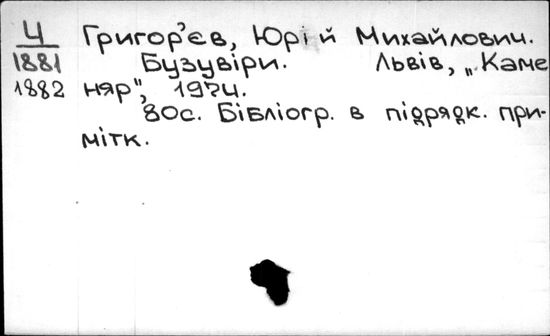 Ч Григор'єв, Юрій Михайлович.
1881 Бузувіри. Львів, „Каме
1882 няр", 1974.
80с. Бібліогр. в підрядк. при-
мітк.